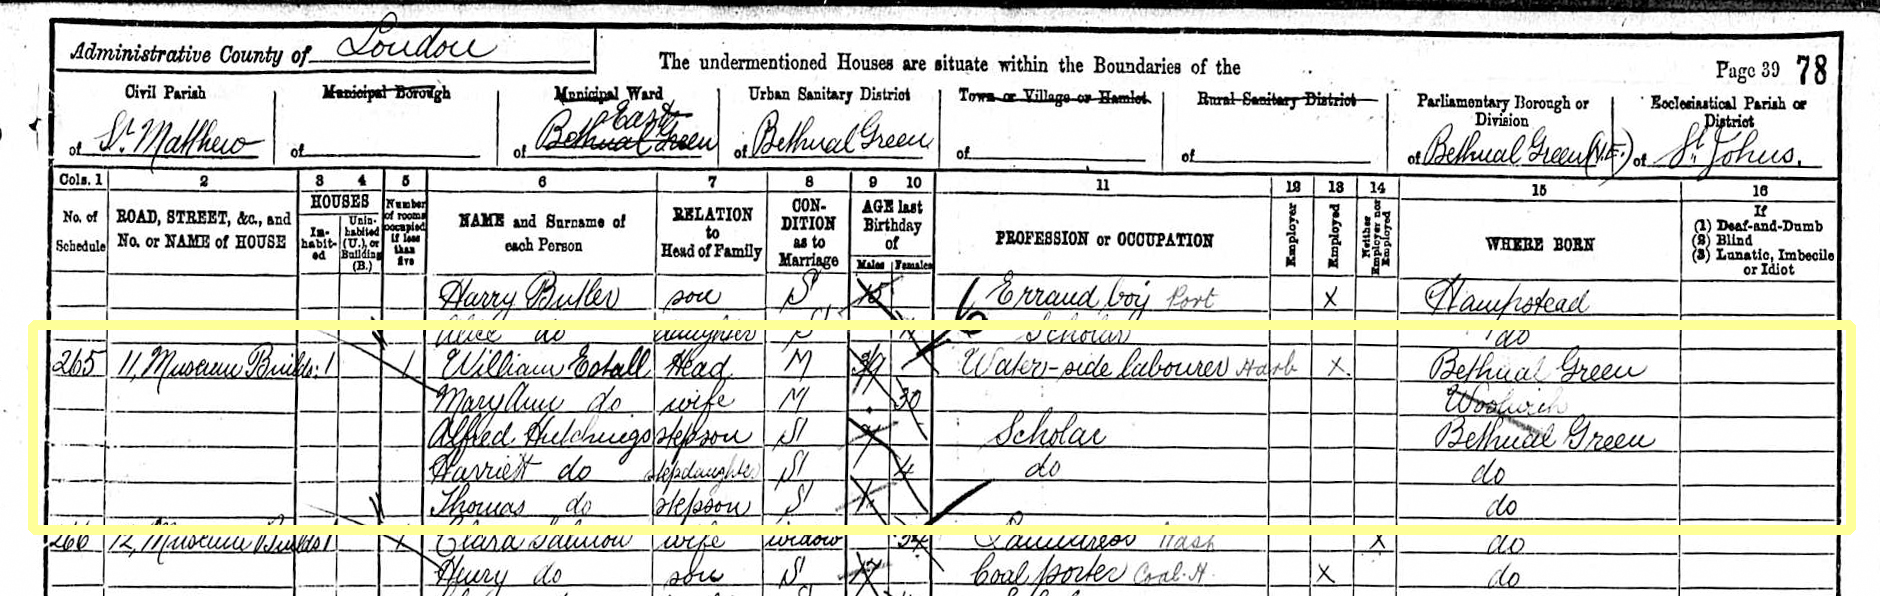 Administrative County of London
The undermentioned Houses are situate within the Boundaries of the
Page 39 78
Civil Parish Municipal Borough Municipal Ward Urban Sanitary District Town or Village or Hamlet Rural Sanitary District Parliamentary Borough or Division Ecclesiastical Parish or District
East
of St. Matthew of of Bethnal Green of Bethnal Green of of of Bethnal Green (N.E.) of St. Johns.
Cols. 1 2 3 4 5 6 7 8 9 10 11 12 13 14 15 16
No. of Schedule ROAD, STREET, &c., and No. or NAME of HOUSE HOUSES Inhabited Uninhabited (U.), or Building (B.) Number of rooms occupied if less than five NAME and Surname of each Person RELATION to Head of Family CONDITION as to Marriage AGE last Birthday of Males Females PROFESSION or OCCUPATION Employer Employed Neither Employer nor Employed WHERE BORN If (1) Deaf-and-Dumb (2) Blind (3) Lunatic, Imbecile or Idiot
Harry Butler son S Errand boy Port X Hampstead
Alice do daughter S Scholar do
265 11, Museum Builds: 1 1 William Estall Head M Water-side labourer X Bethnal Green
Mary Ann do wife M 30 Woolwich
Alfred Hutchings stepson S Scholar Bethnal Green
Harriett do stepdaughter S 4 do do
Thomas do stepson S do
266 12, Museum Builds 1 Clara Salmon wife widow 54 Laundress Wash X do
Henry do son S Coal porter Coal. H. X do